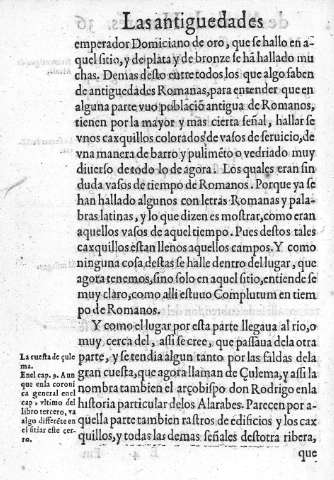 Las antiguedades
emperador Domiciano de oro, que se hallo en a-
quel sitio, y de plata y de bronze se há hallado mu
chas. Demas desto entre todos los que algo saben
de antiguedades Romanas, para entender que en
alguna parte vuo poblaciõ antigua de Romanos,
tienen por la mayor y mas cierta señal, hallar se
vnos caxquillos colorados de vasos de seruicio, de
vna manera de barro y pulimẽto o vedriado muy
diuerso de todo lo de agora. Los quales eran sin
duda vasos de tiempo de Romanos. Porque ya se
han hallado algunos con letras Romanas y pala-
bras latinas, y lo que dizen es mostrar, como eran
aquellos vasos de aquel tiempo. Pues destos tales
caxquillos estan llenos aquellos campos. Y como
ninguna cosa destas se halle dentro del lugar, que
agora tenemos, sino solo en aquel sitio, entiende se
muy claro, como alli estuuo Complutum en tiem
po de Romanos.
Y como el lugar por esta parte llegaua al rio, o
muy cerca del, assi se cree, que passaua dela otra
parte, y se tendia algun tanto por las faldas dela
gran cuesta, que agora llaman de Çulema, y assi la
nombra tambien el arçobispo don Rodrigo en la
historia particular delos Alarabes. Parecen por a-
quella parte tambien rastros de edificios y los cax
quillos, y todas las demas señales destotra ribera,
que
La cuesta de çule
ma.
Enel cap. 9. Aun
que enla coroni
ca general enel
cap. vltimo del
libro tercero, va
algo differẽte en
el sitiar este çer-
ro.